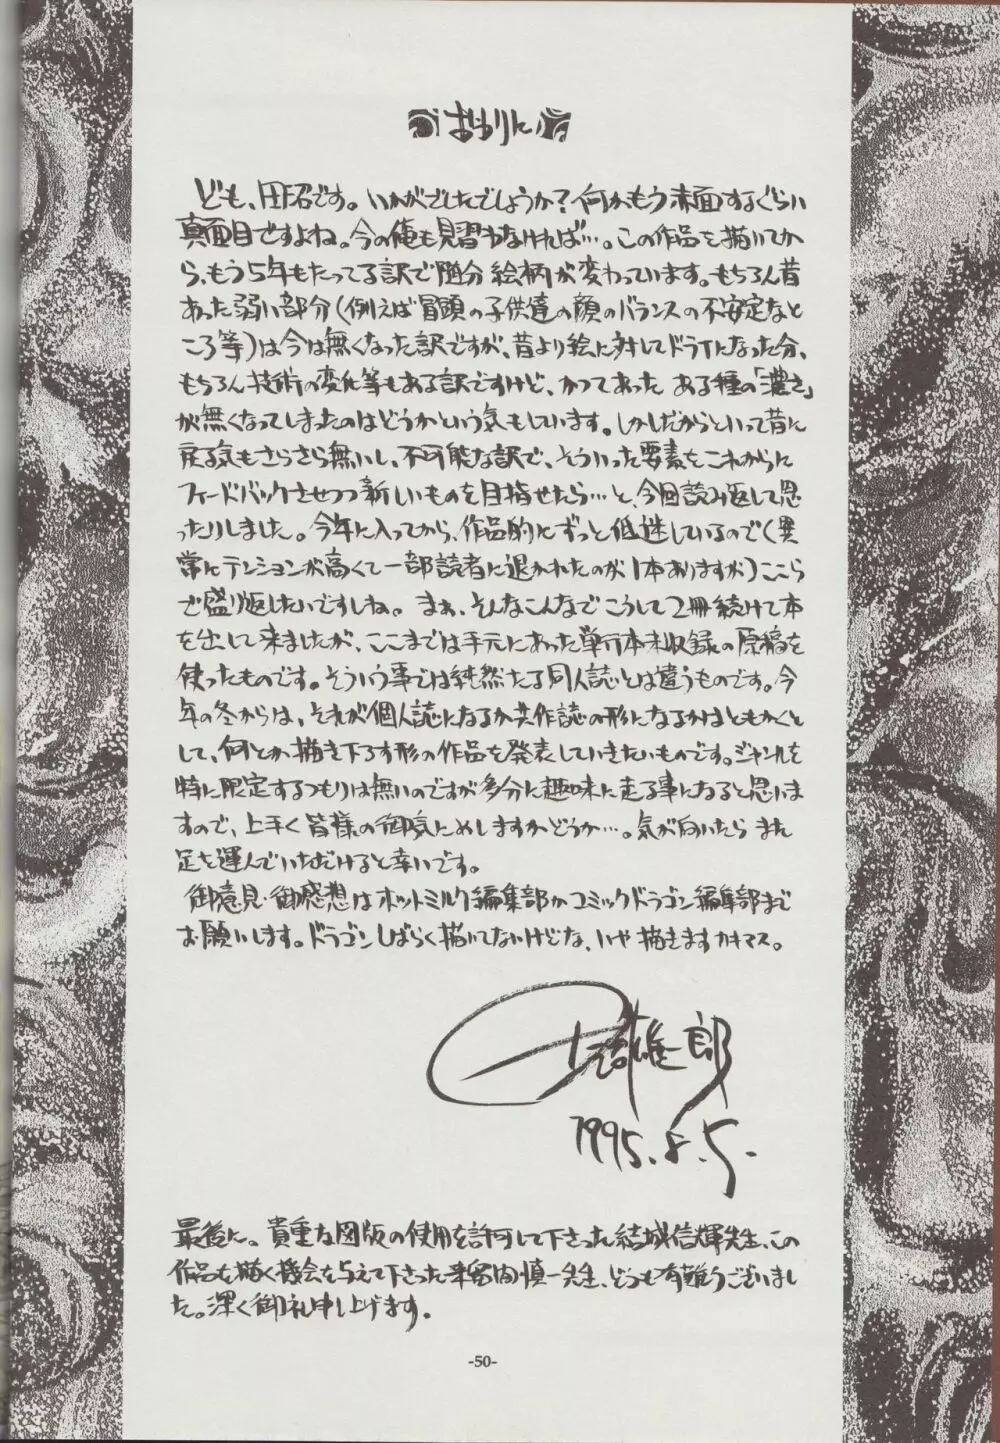 おわりに
ども、田沼です。いかがでしたでしょうか?何かもう赤面するぐらい
真面目ですよね。今の俺も見習わなければ…。この作品を描いてか
ら、もう5年もたってる訳で随分絵柄が変わっています。もちろん昔
あった弱い部分(例えば冒頭の子供達の顔のバランスの不安定なと
ころ等)は今は無くなった訳ですが、昔より絵に対してドライになった分、
もちろん技術の変化等もある訳ですけど、かつてあった ある種の「濃さ」
が無くなってしまったのはどうかという気もしています。しかしだからといって昔に
戻る気もさらさら無いし、不可能な訳で、そういった要素をこれからに
フィードバックさせつつ新しいものを目指せたら…と、今回読み返して思
ったりしました。今年に入ってから、作品的にずっと低迷しているので(異
常にテンションが高くて一部読者に退かれたのが1本ありますが)ここら
で盛り返したいですしね。まぁ、そんなこんなでこうして2冊続けて本
を出して来ましたが、ここまでは手元にあった単行本未収録の原稿を
使ったものです。そういう事では純然たる同人誌とは違うものです。今
年の冬からは、それが個人誌になるか共作誌の形になるかはともかくと
して、何とか描き下ろす形の作品を発表していきたいものです。ジャンルを
特に限定するつもりは無いのですが多分に趣味に走る事になると思いま
すので、上手く皆様の御気にめしますかどうか…。気が向いたら また
足を運んでいただけると幸いです。
御意見・御感想はホットミルク編集部かコミックドラゴン編集部まで
お願いします。ドラゴンしばらく描いてないけどな、いや描きますカキマス。
雄一郎
1995.8.5.
最後に。貴重な図版の使用を許可して下さった結城信輝先生、この
作品を描く機会を与えて下さった 慎一先生、どうも有難うございまし
た。深く御礼申し上げます。
-50-